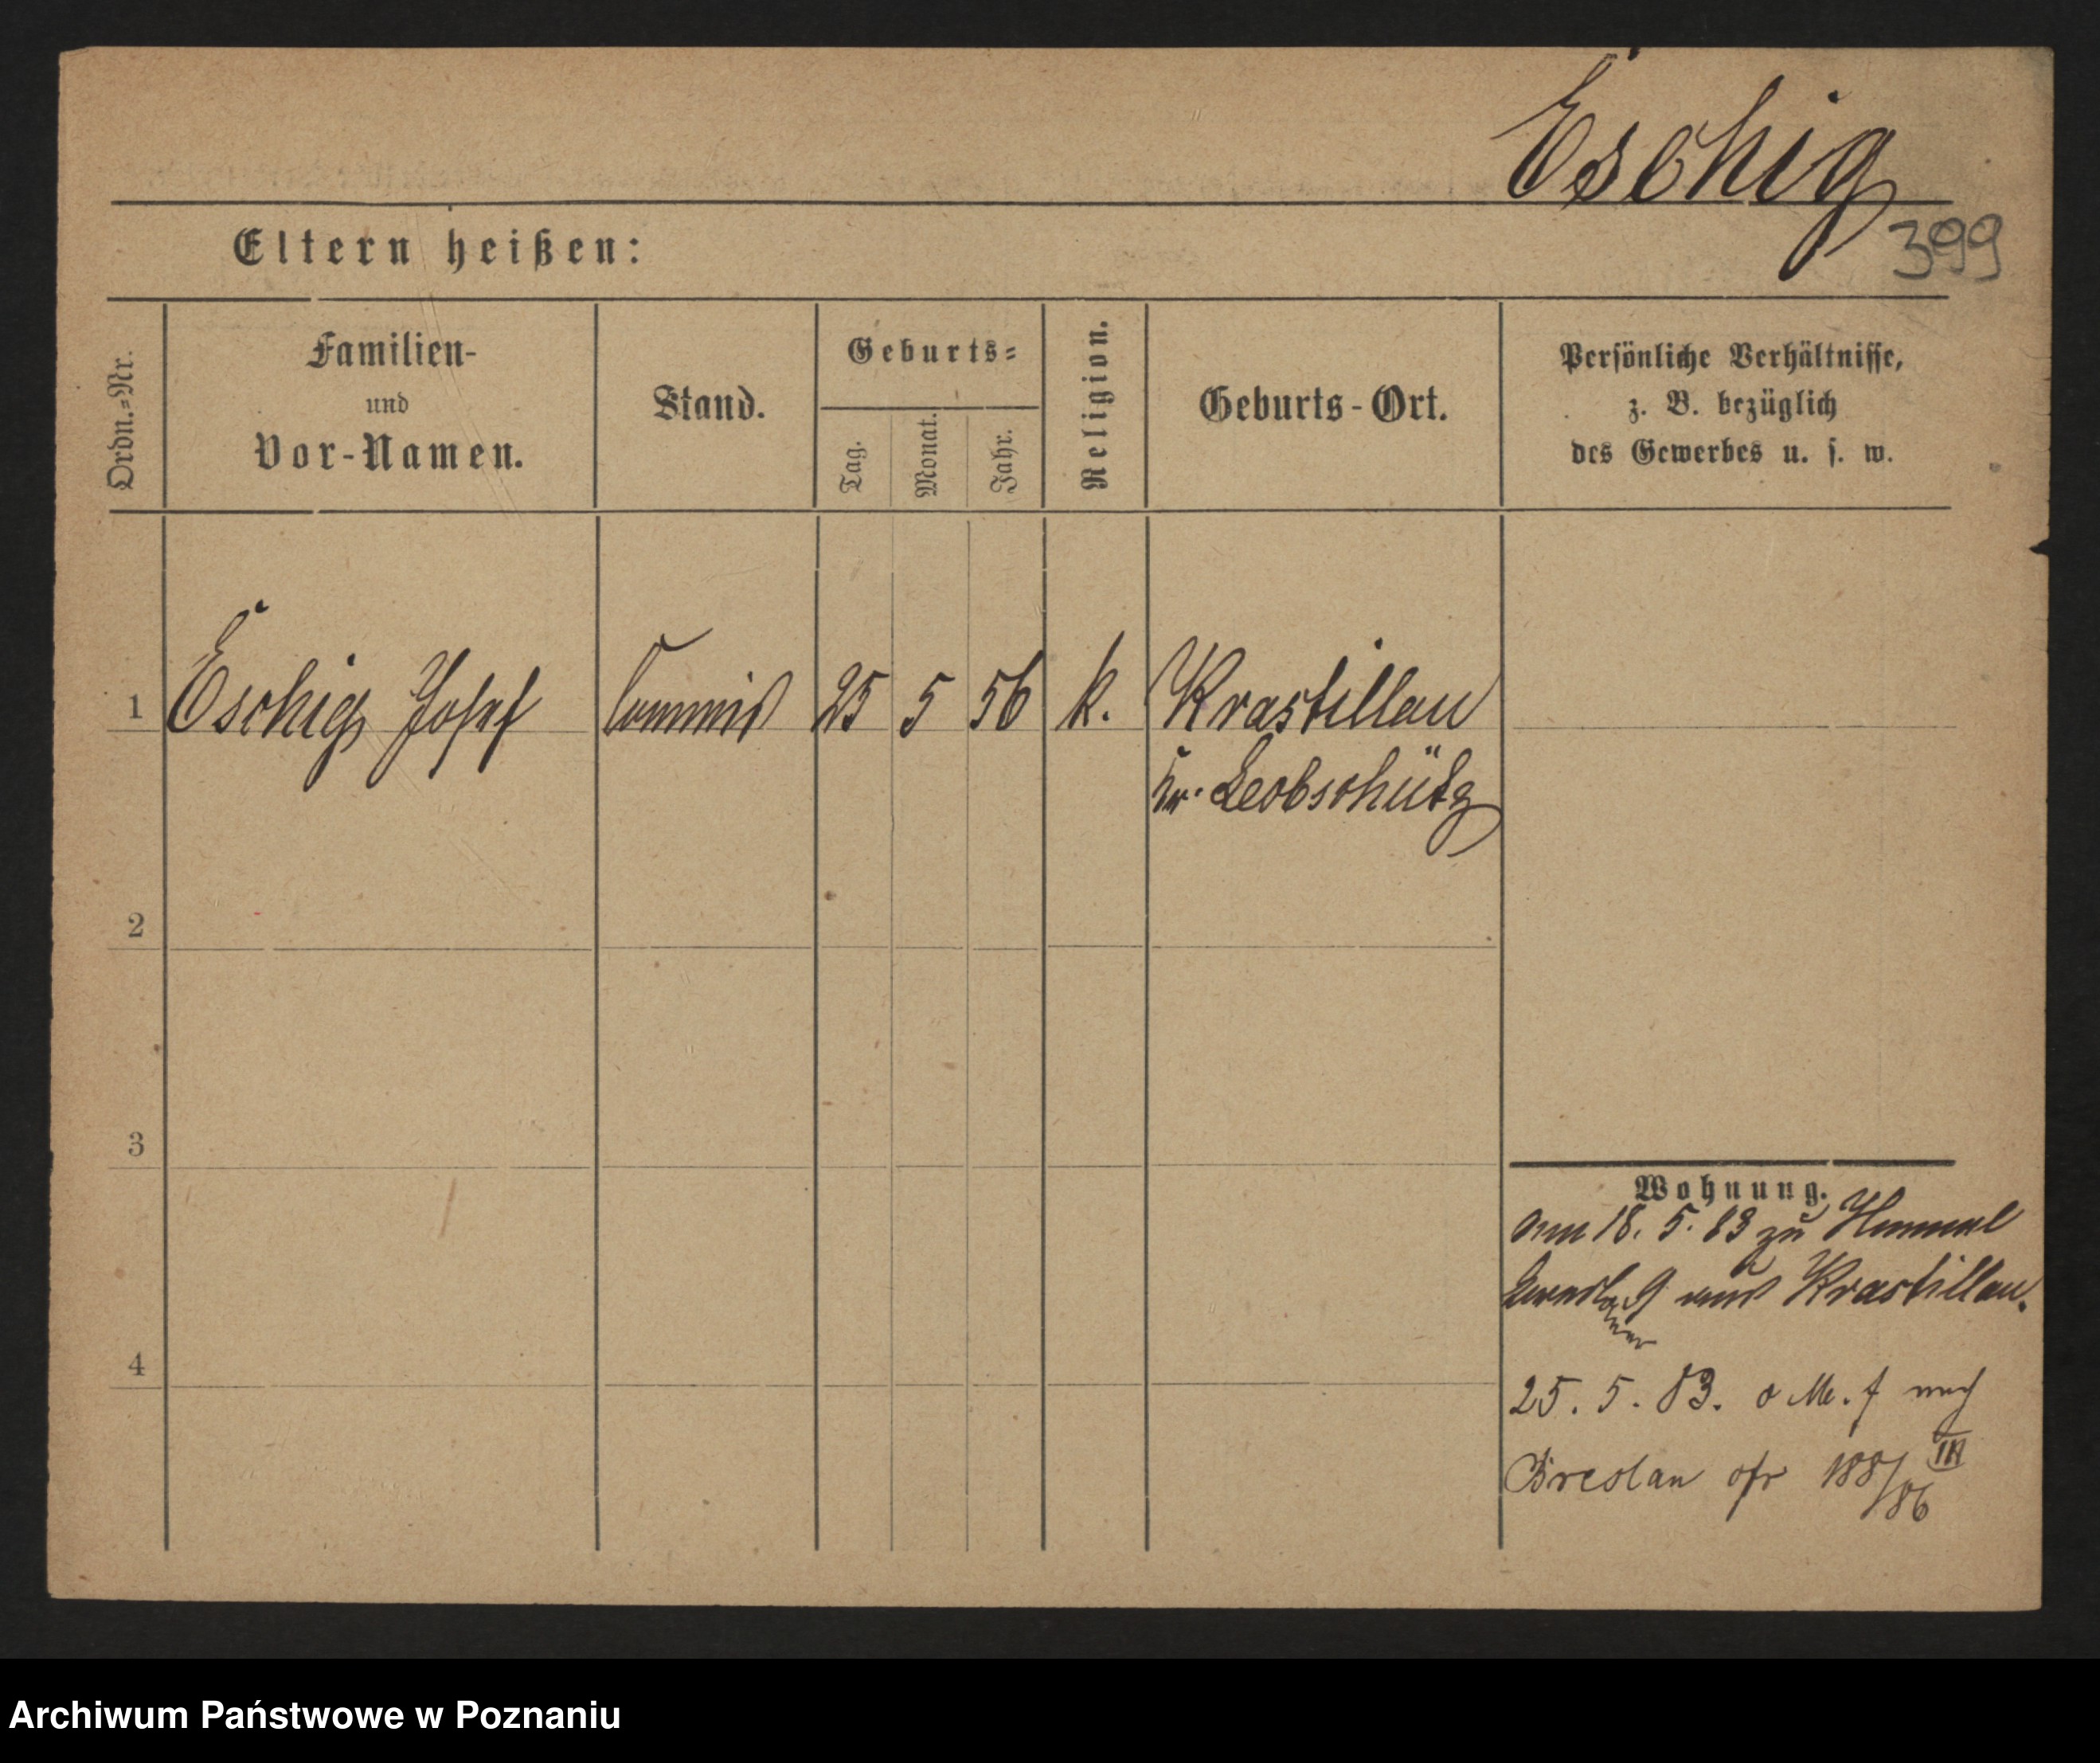 Eschig
399
Eltern heißen:
Ordn.=Nr.
Familien-
und
Vor-Namen.
Stand.
Geburts=
Tag.
Monat.
Jahr.
Religion.
Geburts-Ort.
Persönliche Verhältnisse,
z. B. bezüglich
des Gewerbes u. s. w.
1 Eschig Josef Commis 25 5 56 k. Krastillau
Kr. Leobschütz
2
3
4
Wohnung.
am 18. 5. 83 zu
9 aus Krastillau.
25. 5. 83. nach
Breslau 188/86 III
Archiwum Państwowe w Poznaniu